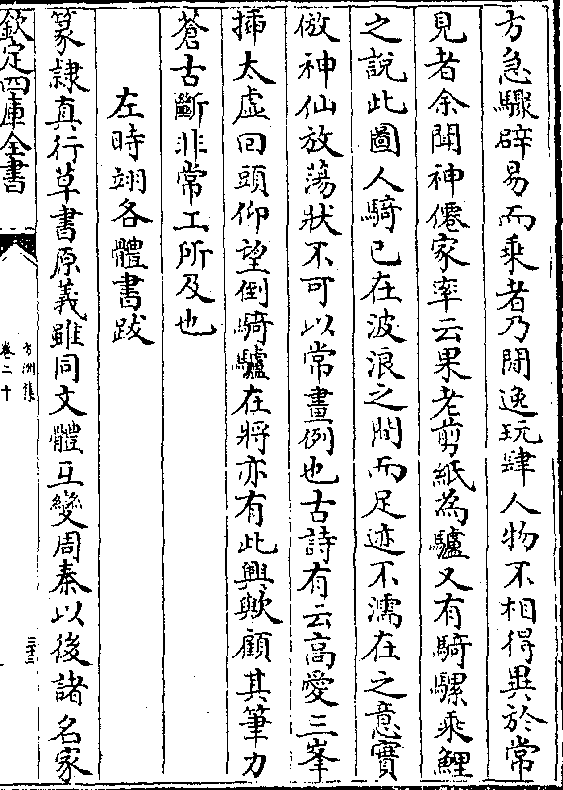 方急驟辟易而乘者乃閒逸玩肆人物不相得異於常
見者余聞神僊家率云果老剪紙為驢又有騎騾乘鯉
之說此圖人騎已在波浪之間而足迹不濡在之意實
倣神仙放蕩狀不可以常畫例也古詩有云高愛三峯
揷太虛回頭仰望倒騎驢在將亦有此興歟顧其筆力
蒼古斷非常工所及也
左時翊各體書跋
篆隷真行草書原義雖同文體互變周秦以後諸名家
欽定四庫全書
方洲集
卷二十
三十三